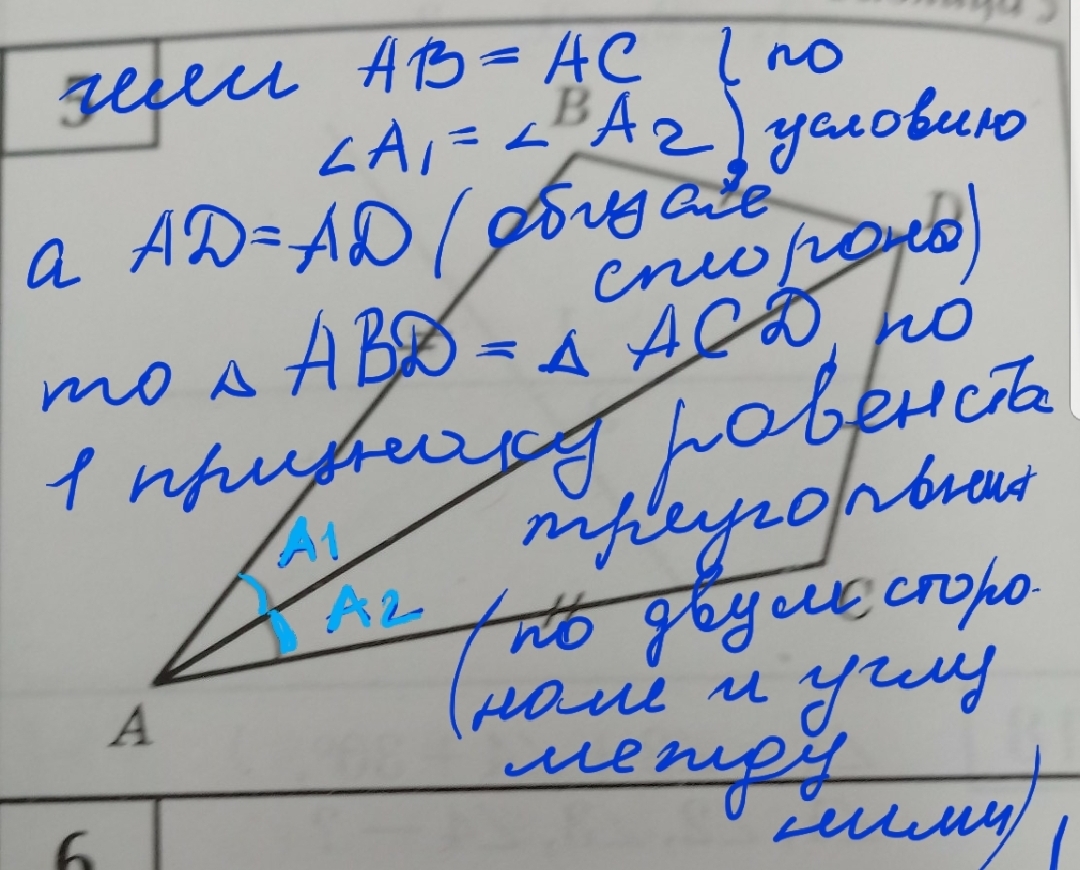 5
если AB = AC ( по
B
∠A1 = ∠A2 ) условию
D
а AD=AD (общая
сторона)
то △ABD = △ACD, по
1 признаку равенства
треугольник
A1
A2
(по двум сторо-
C
нам и углу
A
между
ними)
6